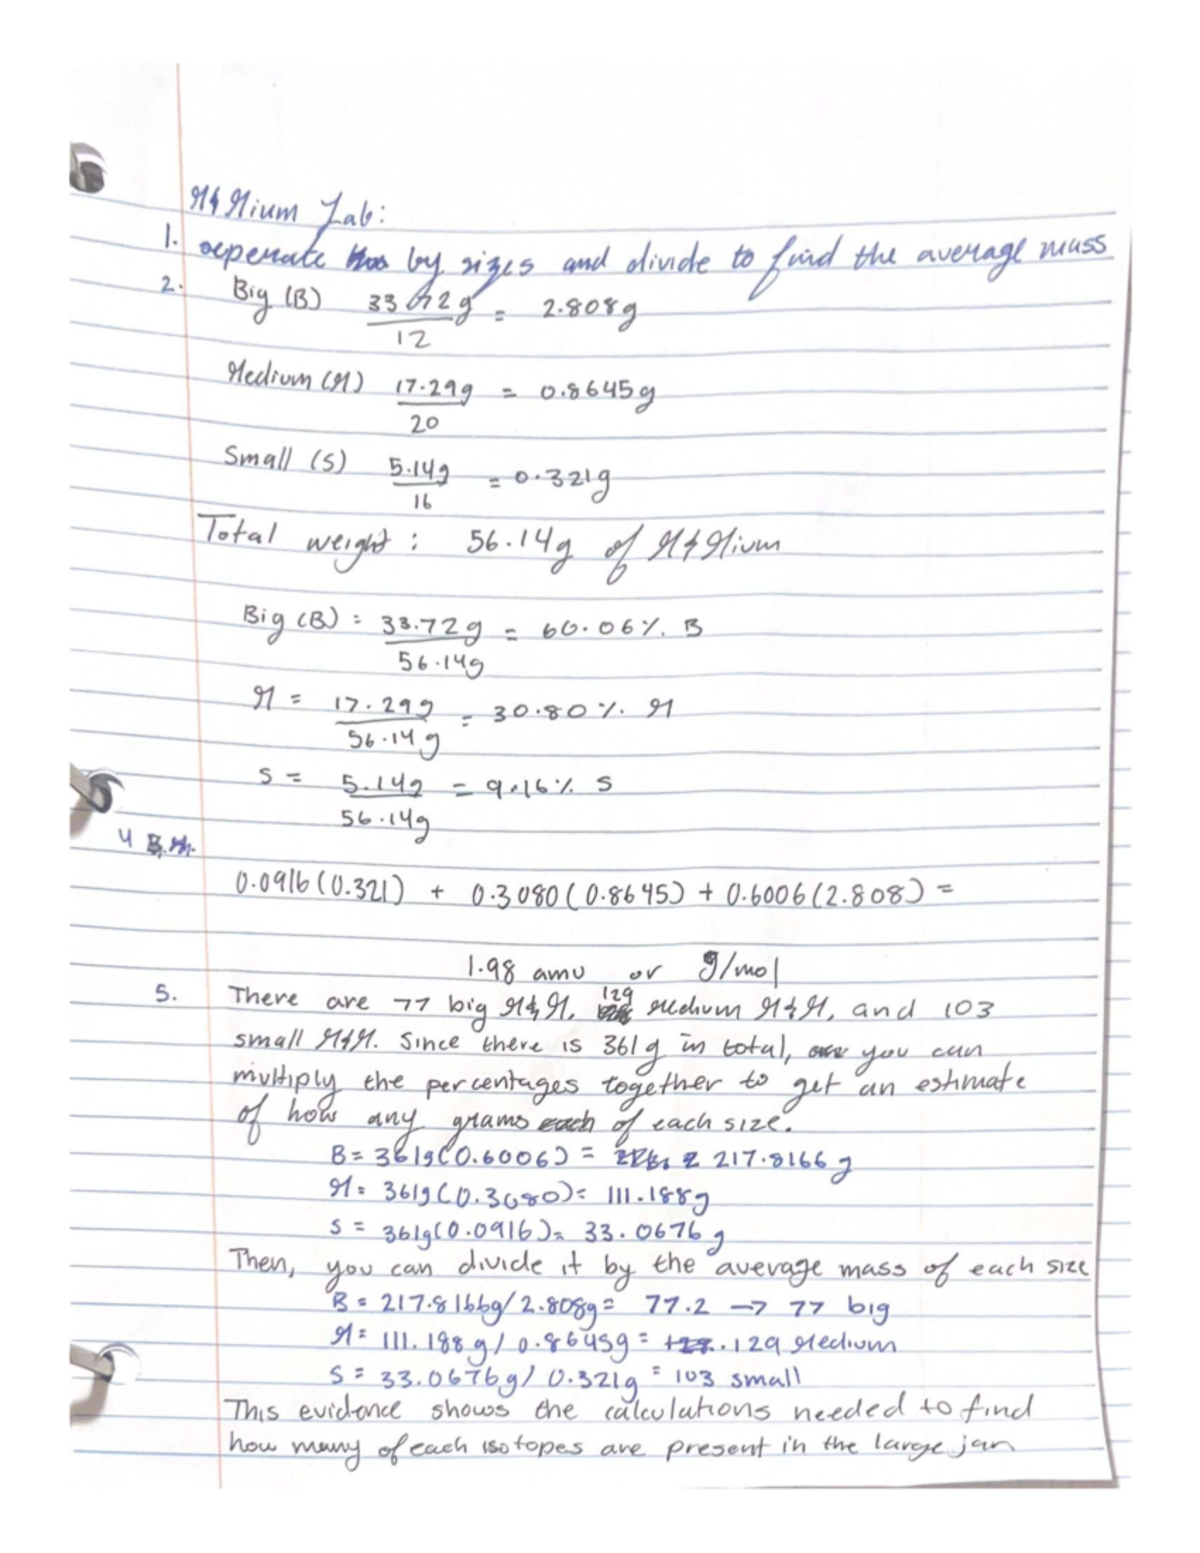 M&Mium Lab:
1. seperate by sizes and divide to find the average mass
2. Big (B) 33.72g / 12 = 2.808g
Medium (M) 17.29g / 20 = 0.8645g
Small (S) 5.14g / 16 = 0.321g
Total weight: 56.14g of M&Mium
Big (B) = 33.72g / 56.14g = 60.06% B
M = 17.29g / 56.14g = 30.80% M
S = 5.14g / 56.14g = 9.16% S
4
0.0916(0.321) + 0.3080(0.8645) + 0.6006(2.808) =
1.98 amu or g/mol
5. There are 77 big M&M, 129 Medium M&M, and 103
small M&M. Since there is 361g in total, you can
multiply the percentages together to get an estimate
of how any grams each of each size.
B = 361g(0.6006) = 217.8166g
M = 361g(0.3080) = 111.188g
S = 361g(0.0916) = 33.0676g
Then, you can divide it by the average mass of each size
B = 217.8166g/2.808g = 77.2 → 77 big
M = 111.188g/0.8645g = 129 Medium
S = 33.0676g/0.321g = 103 small
This evidence shows the calculations needed to find
how many of each isotopes are present in the large jar